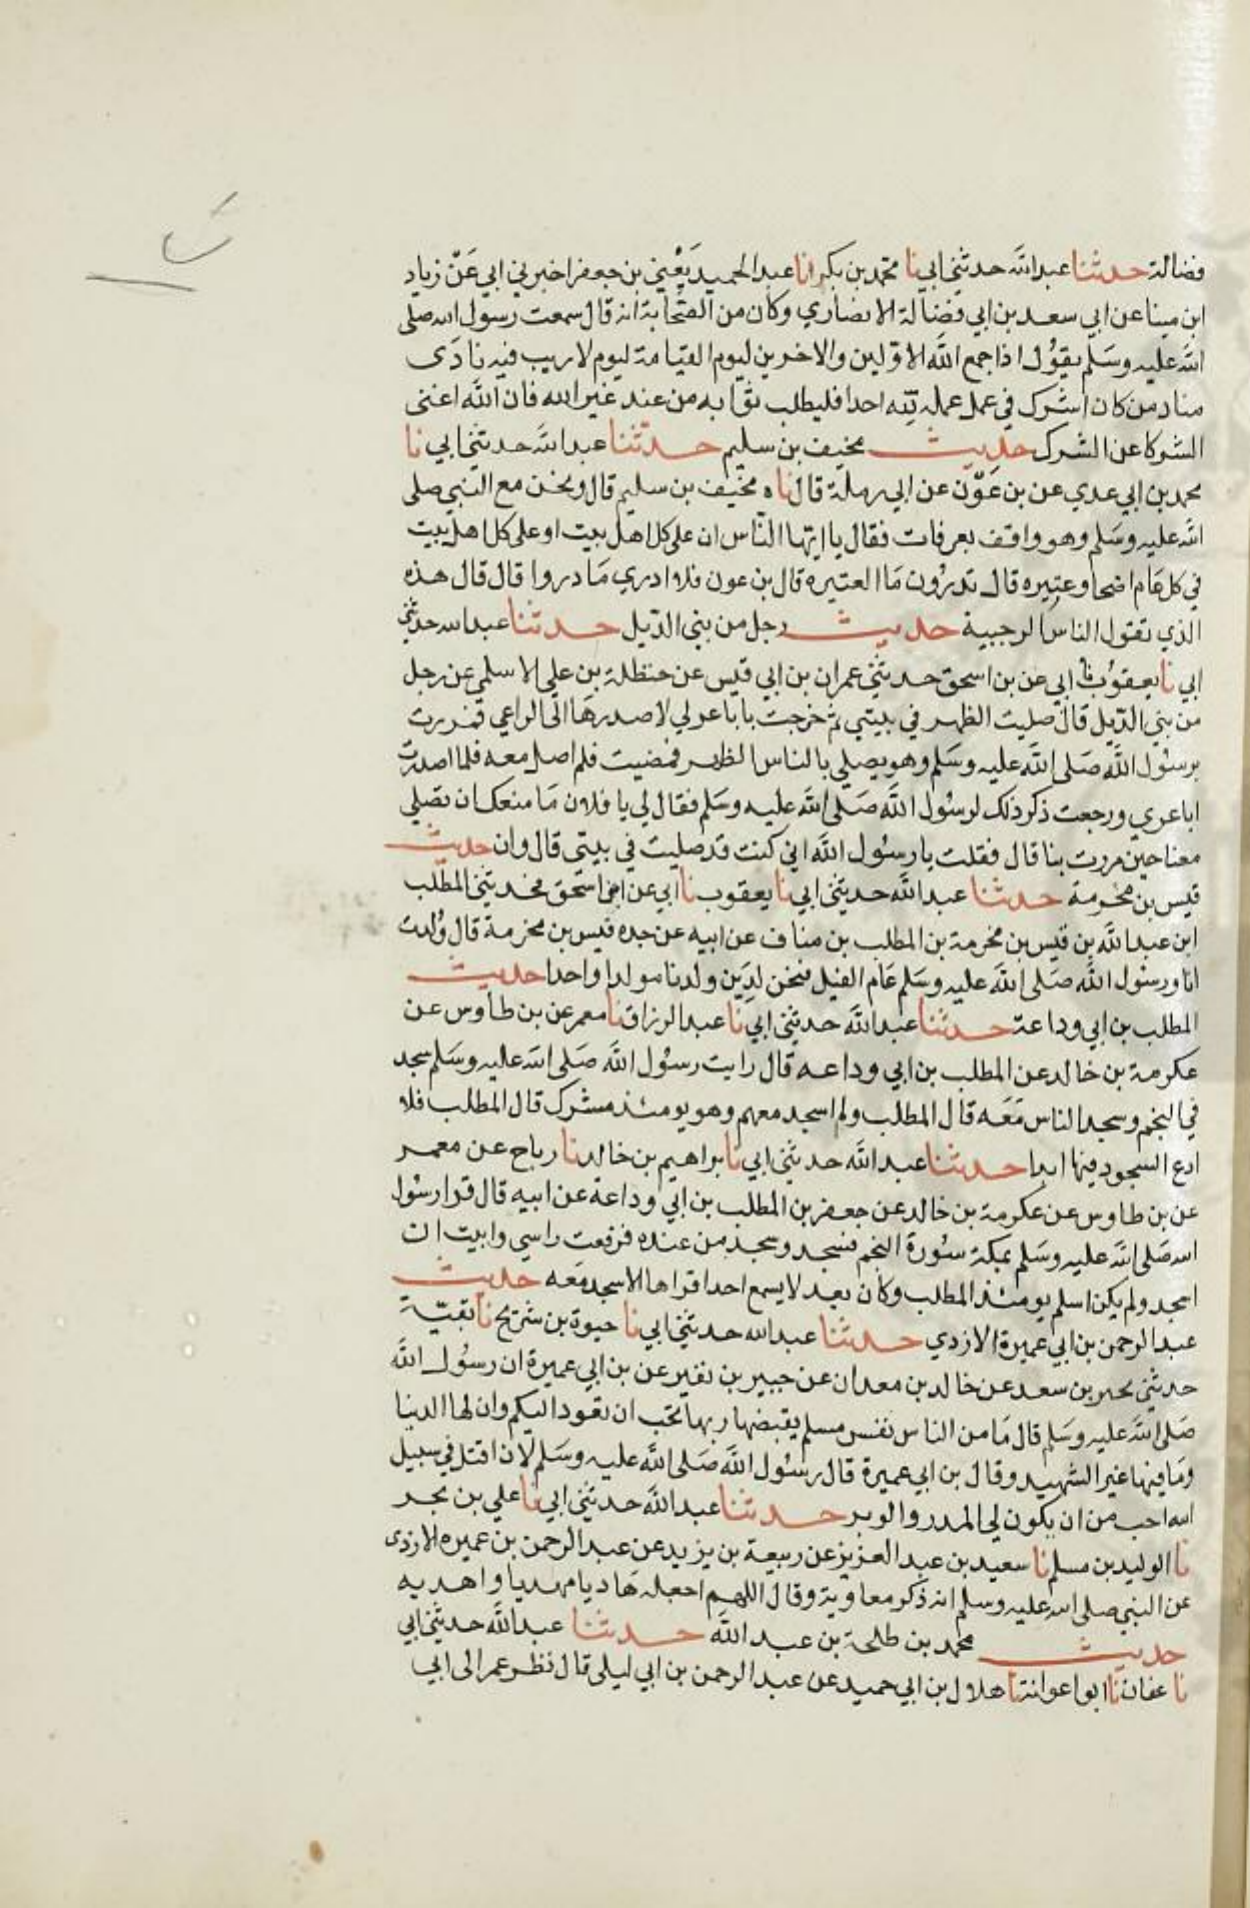 فضالة حدثنا عبدالله حدثني ابي نا محمد بن بكر انا عبدالحميد يعني بن جعفر اخبرني ابي عن زياد
ابن مينا عن ابي سعد بن ابي فضالة الانصاري وكان من الصحابة انه قال سمعت رسول الله صلى
الله عليه وسلم يقول اذا جمع الله الاولين والاخرين ليوم القيامة ليوم لاريب فيه نادى
مناد من كان اشرك في عمل عمله لله احدا فليطلب ثوابه من عند غير الله فان الله اغنى
الشركا عن الشرك حديث مخنف بن سليم حدثنا عبدالله حدثني ابي نا
محمد بن ابي عدي عن بن عون عن ابي رملة قال ناه مخنف بن سليم قال ونحن مع النبي صلى
الله عليه وسلم وهو واقف بعرفات فقال يا ايها الناس ان على كل اهل بيت او على كل اهل بيت
في كل عام اضحا وعتيره قال تدرون ما العتيره قال بن عون فلا ادري ما دروا قال قال هذه
الذي تقول الناس الرجبية حديث رجل من بني الديل حدثنا عبدالله حدثني
ابي نا يعقوب نا ابي عن بن اسحق حدثني عمران بن ابي قيس عن حنظلة بن علي الاسلمي عن رجل
من بني الديل قال صليت الظهر في بيتي ثم خرجت باباعر لي لاصدرها الى الراعي فمررت
برسول الله صلى الله عليه وسلم وهو يصلي بالناس الظهر فمضيت فلم اصل معه فلما اصدرت
اباعري ورجعت ذكر ذلك لرسول الله صلى الله عليه وسلم فقال لي يا فلان ما منعك ان تصلي
معنا حين مررت بنا قال فقلت يا رسول الله اني كنت قد صليت في بيتي قال وان حديث
قيس بن مخرمة حدثنا عبدالله حدثني ابي نا يعقوب نا ابي عن اسحق فحدثني المطلب
ابن عبدالله بن قيس بن مخرمة بن المطلب بن مناف عن ابيه عن جده قيس بن مخرمة قال ولدت
انا ورسول الله صلى الله عليه وسلم عام الفيل فنحن لدين ولدنا مولدا واحدا حديث
المطلب بن ابي وداعة حدثنا عبدالله حدثني ابي نا عبدالرزاق نا معمر عن بن طاوس عن
عكرمة بن خالد عن المطلب بن ابي وداعه قال رايت رسول الله صلى الله عليه وسلم سجد
في النجم وسجد الناس معه قال المطلب ولم اسجد معهم وهو يومئذ مشرك قال المطلب فلا
ادع السجود فيها ابدا حدثنا عبدالله حدثني ابي نا براهيم بن خالد نا رباح عن معمر
عن بن طاوس عن عكرمة بن خالد عن جعفر بن المطلب بن ابي وداعة عن ابيه قال قرا رسول
الله صلى الله عليه وسلم بمكة سورة النجم فسجد وسجد من عنده فرفعت راسي وابيت ان
اسجد ولم يكن اسلم يومئذ المطلب وكان بعد لا يسمع احدا قراها الا سجد معه حديث
عبدالرحمن بن ابي عميرة الازدي حدثنا عبدالله حدثني ابي نا حيوة بن شريح نا بقية
حدثني بحير بن سعد عن خالد بن معدان عن جبير بن نفير عن بن ابي عميرة ان رسول الله
صلى الله عليه وسلم قال ما من الناس نفس مسلم يقبضها ربها تحب ان تعود اليكم وان لها الدنيا
وما فيها غير الشهيد وقال بن ابي عميرة قال رسول الله صلى الله عليه وسلم لان اقتل في سبيل
الله احب من ان يكون لي المدر والوبر حدثنا عبدالله حدثني ابي نا علي بن بحر
نا الوليد بن مسلم نا سعيد بن عبد العزيز عن ربيعة بن يزيد عن عبدالرحمن بن عميره الازدى
عن النبي صلى الله عليه وسلم انه ذكر معاوية وقال اللهم اجعله هاديا مهديا واهد به
حديث محمد بن طلحة بن عبد الله حدثنا عبدالله حدثني ابي
نا عفان نا ابوا عوانة نا هلال بن ابي حميد عن عبدالرحمن بن ابي ليلى قال نظر عمر الى ابي